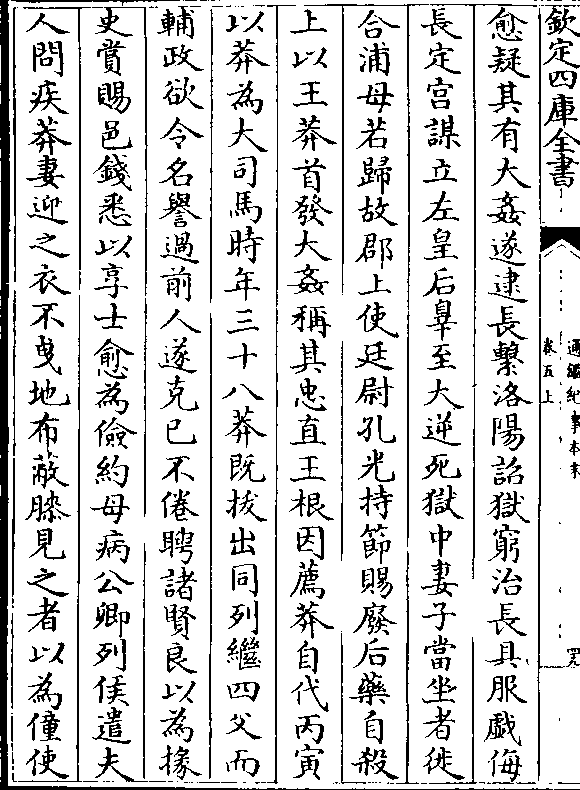 欽定四庫全書
通鑑紀事本末
卷五上
愈疑其有大姦遂逮長繫洛陽詔獄窮治長具服戲侮
長定宫謀立左皇后辠至大逆死獄中妻子當坐者徙
合浦母若歸故郡上使廷尉孔光持節賜廢后藥自殺
上以王莽首發大姦稱其忠直王根因薦莽自代丙寅
以莽為大司馬時年三十八莽既拔出同列繼四父而
輔政欲令名譽過前人遂克已不倦聘諸賢良以為掾
史賞賜邑錢悉以享士愈為儉約母病公卿列侯遣夫
人問疾莽妻迎之衣不曳地布蔽膝見之者以為僮使